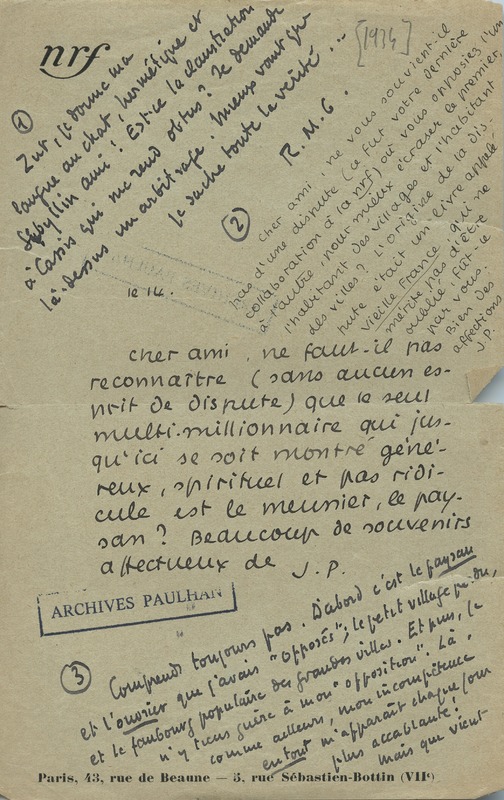 nrf
[1934]
①
Zut, je donne ma
langue au chat, hermétique et
Sibyllin ami ! Est-ce la claustration
à Cassis qui me rend obtus ? Je demande
là-dessus un arbitrage. Mieux vaut que
je sache toute la vérité...
R. M. G.
②
Cher ami, ne vous souvient-il
pas d'une dispute (ce fut votre dernière
collaboration à la nrf) où vous opposiez l'un
à l'autre, pour mieux écraser le premier,
l'habitant des villages et l'habitant
des villes ? L'origine de la dis-
pute était un livre appelé
Vieille France, qui ne
mérite pas d'être
oublié, fût-ce
par vous.
Bien des
affections
J.P.
le 14.
cher ami, ne faut-il pas
reconnaître (sans aucun es-
prit de dispute) que le seul
multi-millionnaire qui jus-
qu'ici se soit montré géné-
reux, spirituel et pas ridi-
cule est le meunier, le pay-
san ? Beaucoup de souvenirs
affectueux de
J.P.
ARCHIVES PAULHAN
③
Comprends toujours pas. D'abord c'est le paysan
et l'ouvrier que j'avais "opposés"; le petit village perdu,
et le faubourg populaire des grandes villes. Et puis, je
n'y tiens guère à mon "opposition". Là
comme ailleurs, mon incompétence
en tout m'apparaît chaque jour
plus accablante !
Mais que vient
Paris, 43, rue de Beaune — 5, rue Sébastien-Bottin (VIIe)